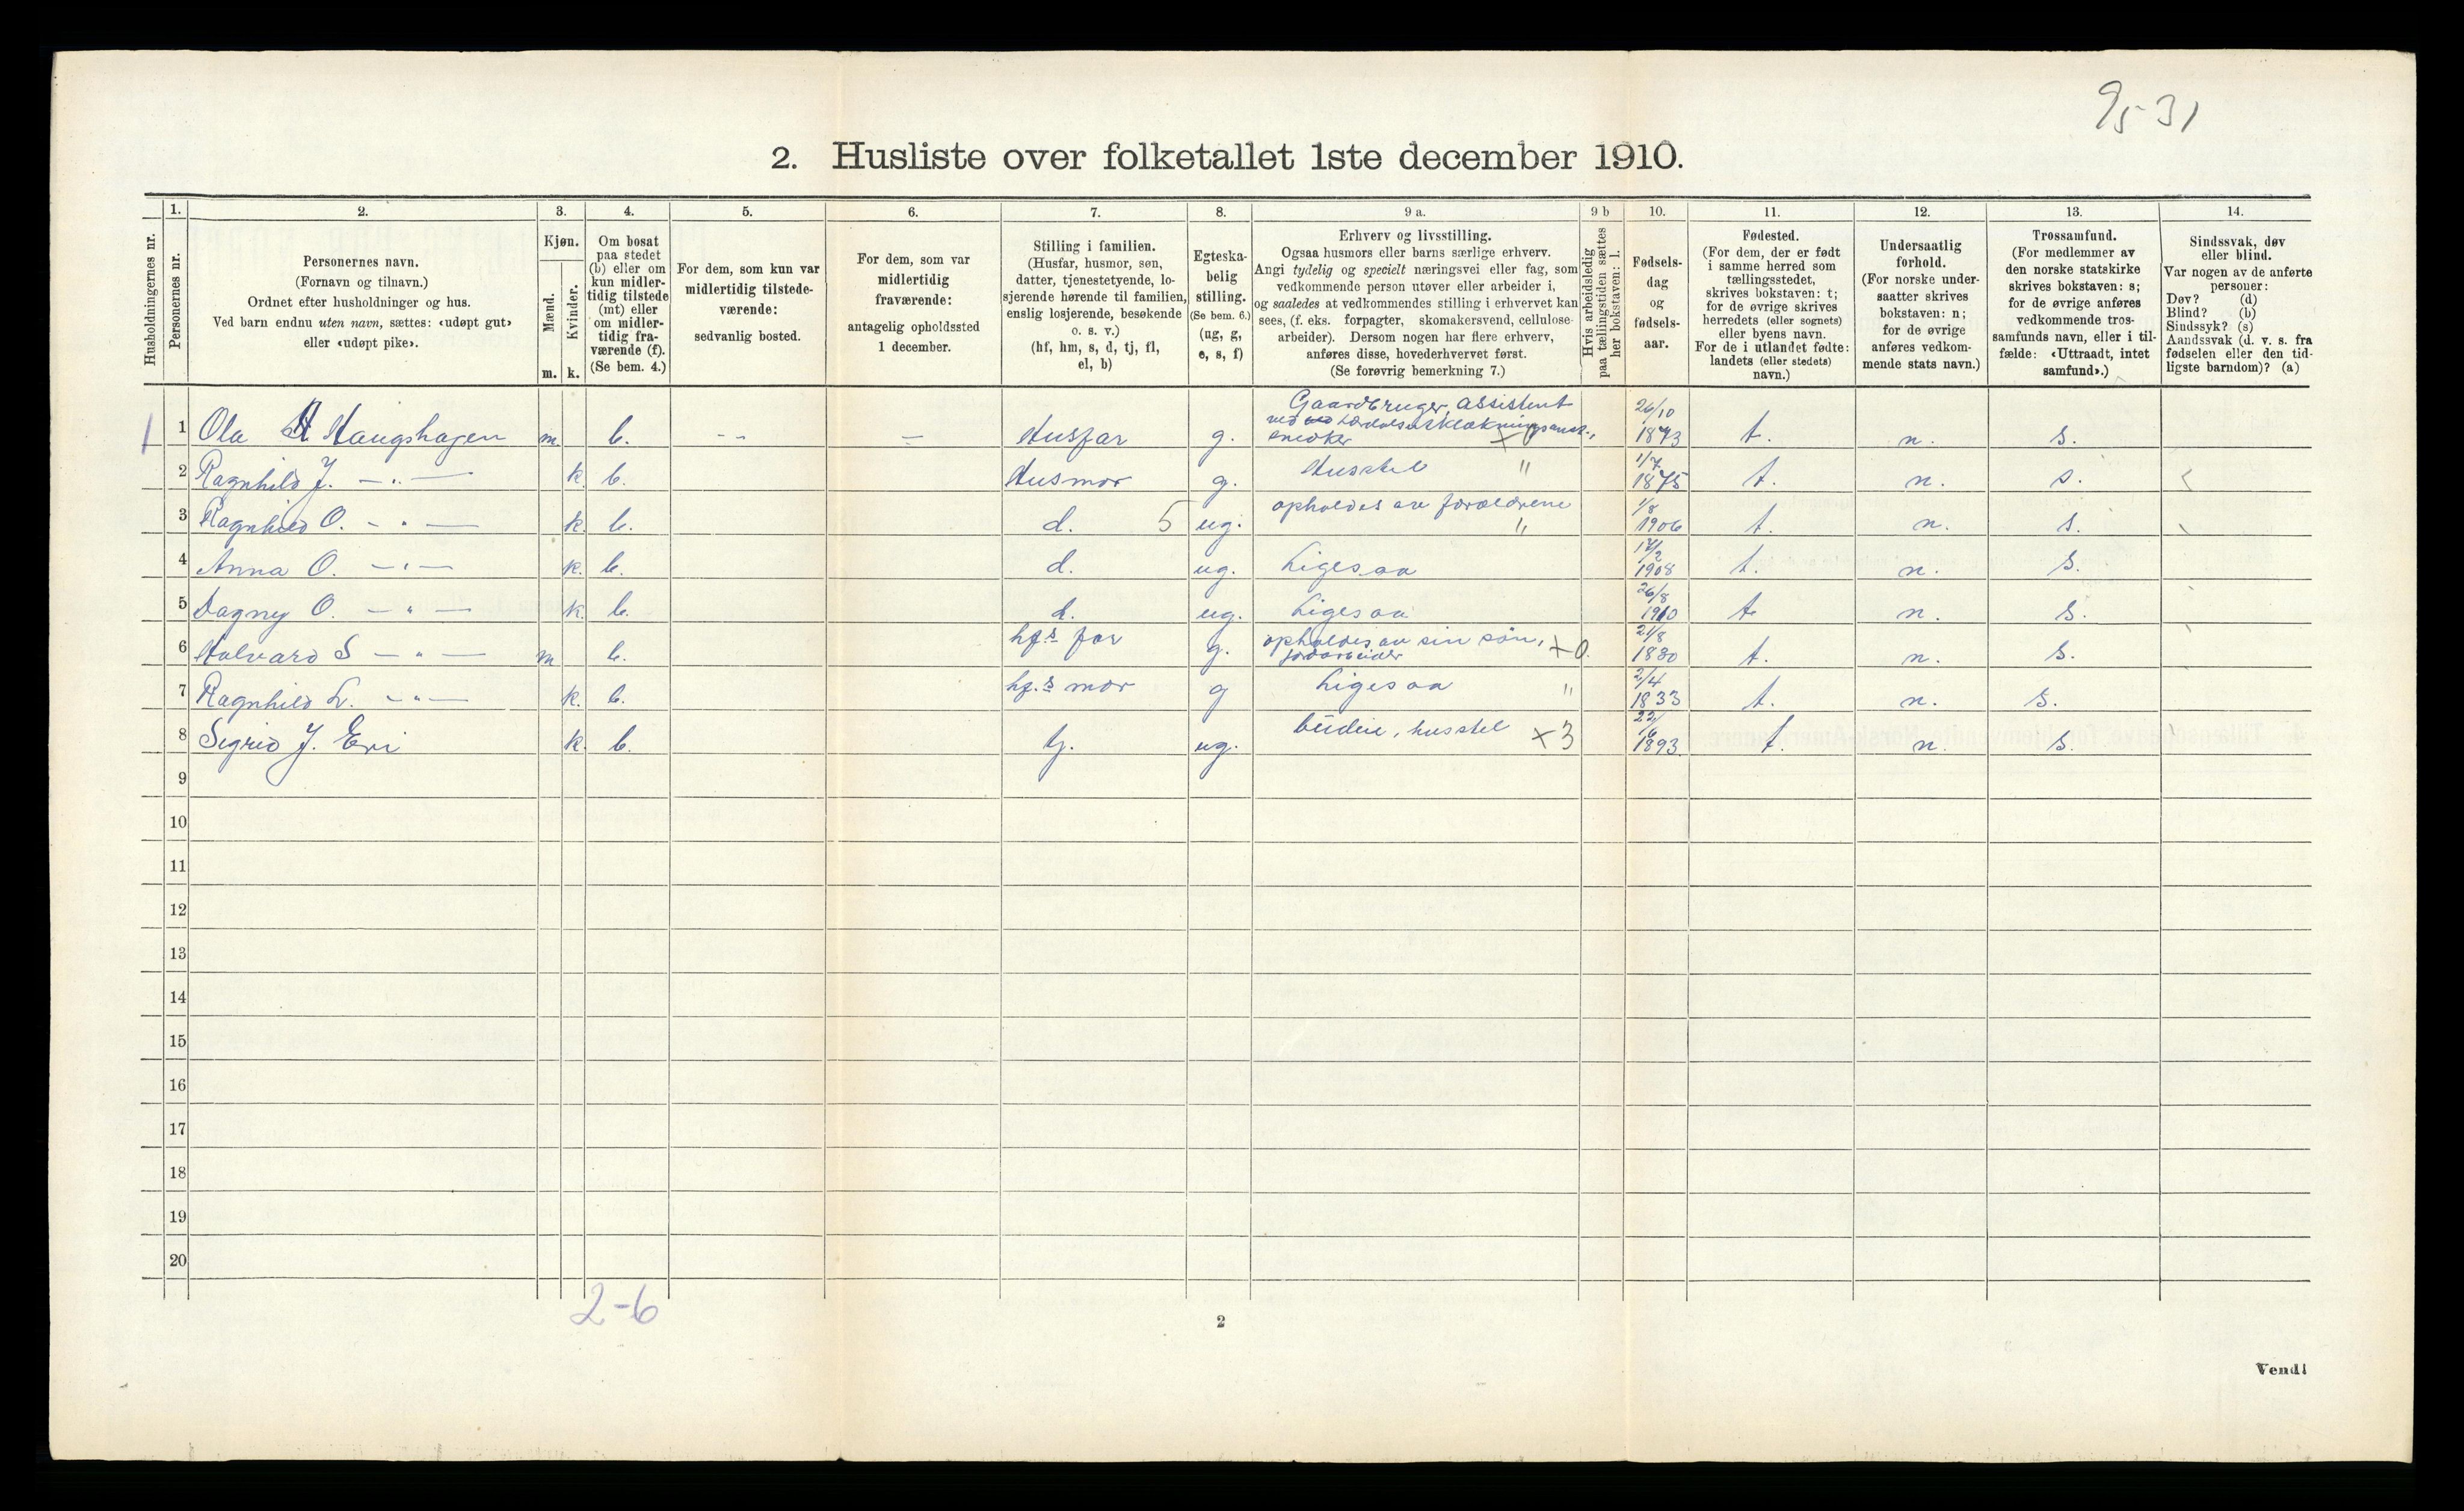 95-31
2. Husliste over folketallet 1ste december 1910.
Husholdningernes nr.
1. Personernes nr.
2. Personernes navn.
(Fornavn og tilnavn.)
Ordnet efter husholdninger og hus.
Ved barn endnu uten navn, sættes: «udøpt gut»
eller «udøpt pike».
3. Kjøn.
Mænd. m.
Kvinder. k.
4. Om bosat
paa stedet
(b) eller om
kun midler-
tidig tilstede
(mt) eller
om midler-
tidig fra-
værende (f).
(Se bem. 4.)
5. For dem, som kun var
midlertidig tilstede-
værende:
sedvanlig bosted.
6. For dem, som var
midlertidig
fraværende:
antagelig opholdssted
1 december.
7. Stilling i familien.
(Husfar, husmor, søn,
datter, tjenestetyende, lo-
sjerende hørende til familien,
enslig losjerende, besøkende
o. s. v.)
(hf, hm, s, d, tj, fl,
el, b)
8. Egteska-
belig
stilling.
(Se bem. 6.)
(ug, g,
e, s, f)
9 a. Erhverv og livsstilling.
Ogsaa husmors eller barns særlige erhverv.
Angi tydelig og specielt næringsvei eller fag, som
vedkommende person utøver eller arbeider i,
og saaledes at vedkommendes stilling i erhvervet kan
sees, (f. eks. forpagter, skomakersvend, cellulose-
arbeider). Dersom nogen har flere erhverv,
anføres disse, hovederhvervet først.
(Se forøvrig bemerkning 7.)
9 b Hvis arbeidsledig
paa tællingstiden sættes
her bokstaven: l.
10. Fødsels-
dag
og
fødsels-
aar.
11. Fødested.
(For dem, der er født
i samme herred som
tællingsstedet,
skrives bokstaven: t;
for de øvrige skrives
herredets (eller sognets)
eller byens navn.
For de i utlandet fødte:
landets (eller stedets)
navn.)
12. Undersaatlig
forhold.
(For norske under-
saatter skrives
bokstaven: n;
for de øvrige
anføres vedkom-
mende stats navn.)
13. Trossamfund.
(For medlemmer av
den norske statskirke
skrives bokstaven: s;
for de øvrige anføres
vedkommende tros-
samfunds navn, eller i til-
fælde: «Uttraadt, intet
samfund».)
14. Sindssvak, døv
eller blind.
Var nogen av de anførte
personer:
Døv? (d)
Blind? (b)
Sindssyk? (s)
Aandssvak (d. v. s. fra
fødselen eller den tid-
ligste barndom)? (a)
1 1 Ola H Haugshagen m. b. - - - Husfar g. Gaardbruger, assistent
ved snedker x 0 26/10 1873 t. n. s.
2 Ragnhild J. - " - k. b. Husmor g. Husstel " 1/7 1875 t. n. s.
3 Ragnhild O. - " - k. b. d. 5 ug. opholdes av forældrene " 1/8 1906 t. n. s.
4 Anna O. - " - k. b. d. ug. Ligesaa 17/2 1908 t. n. s.
5 Dagny O. - " - k. b. d. ug. Ligesaa 26/8 1910 t. n. s.
6 Halvard S - " - m b. hf.s far g. opholdes av sin søn,
jordarbeider x 0. 21/8 1830 t. n. s.
7 Ragnhild L. - " - k. b. hf.s mor g Ligesaa " 2/4 1833 t. n. s.
8 Sigrid J. Eri k. b. tj. ug. budeie, husstel x 3 22/6 1893 t. n. s.
9
10
11
12
13
14
15
16
17
18
19
20
2-6
2
Vend!